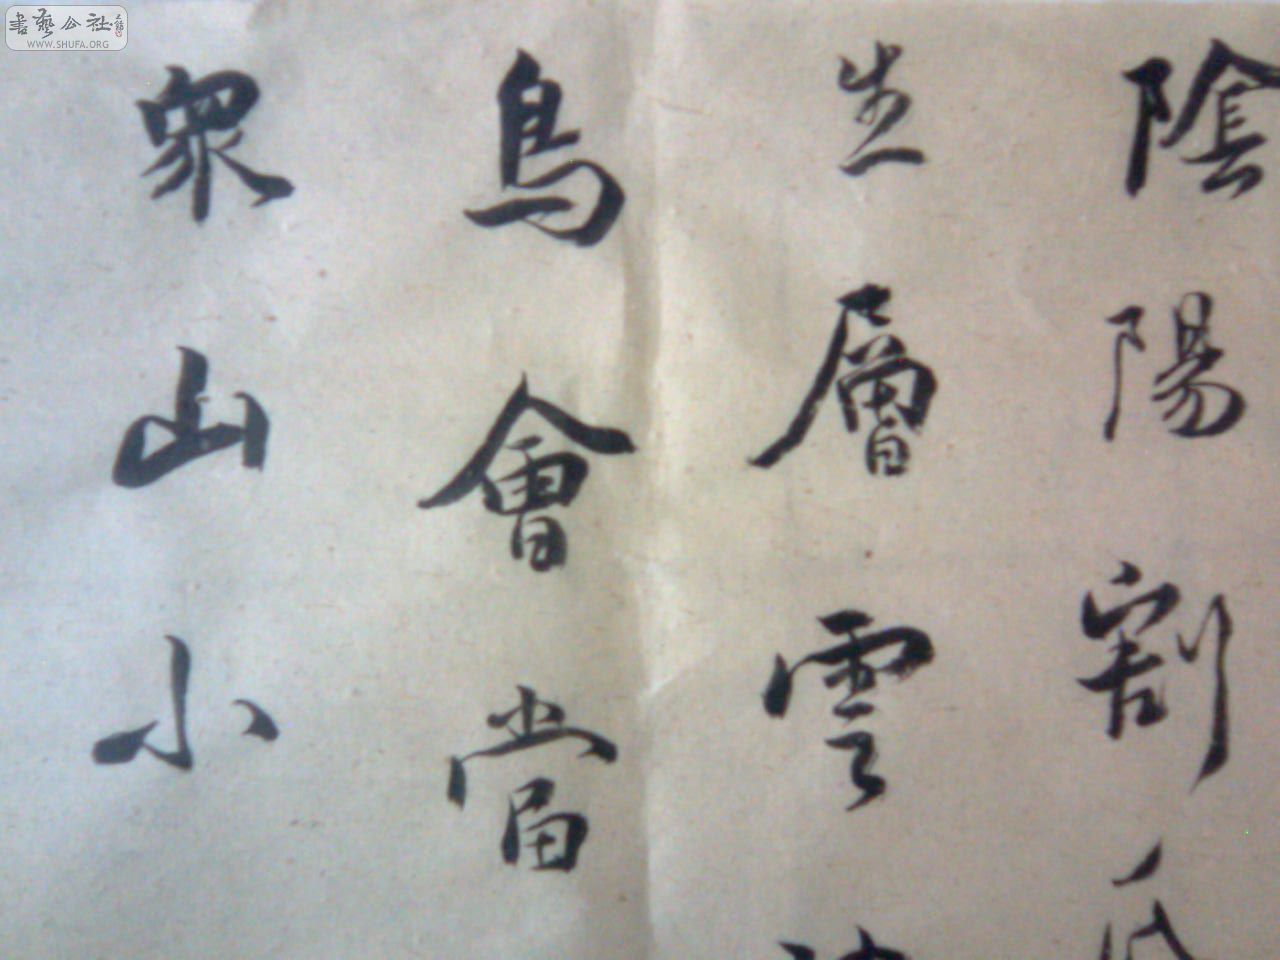 陰陽割
生層雲
鳥會當
眾山小
書藝公社
WWW.SHUFA.ORG